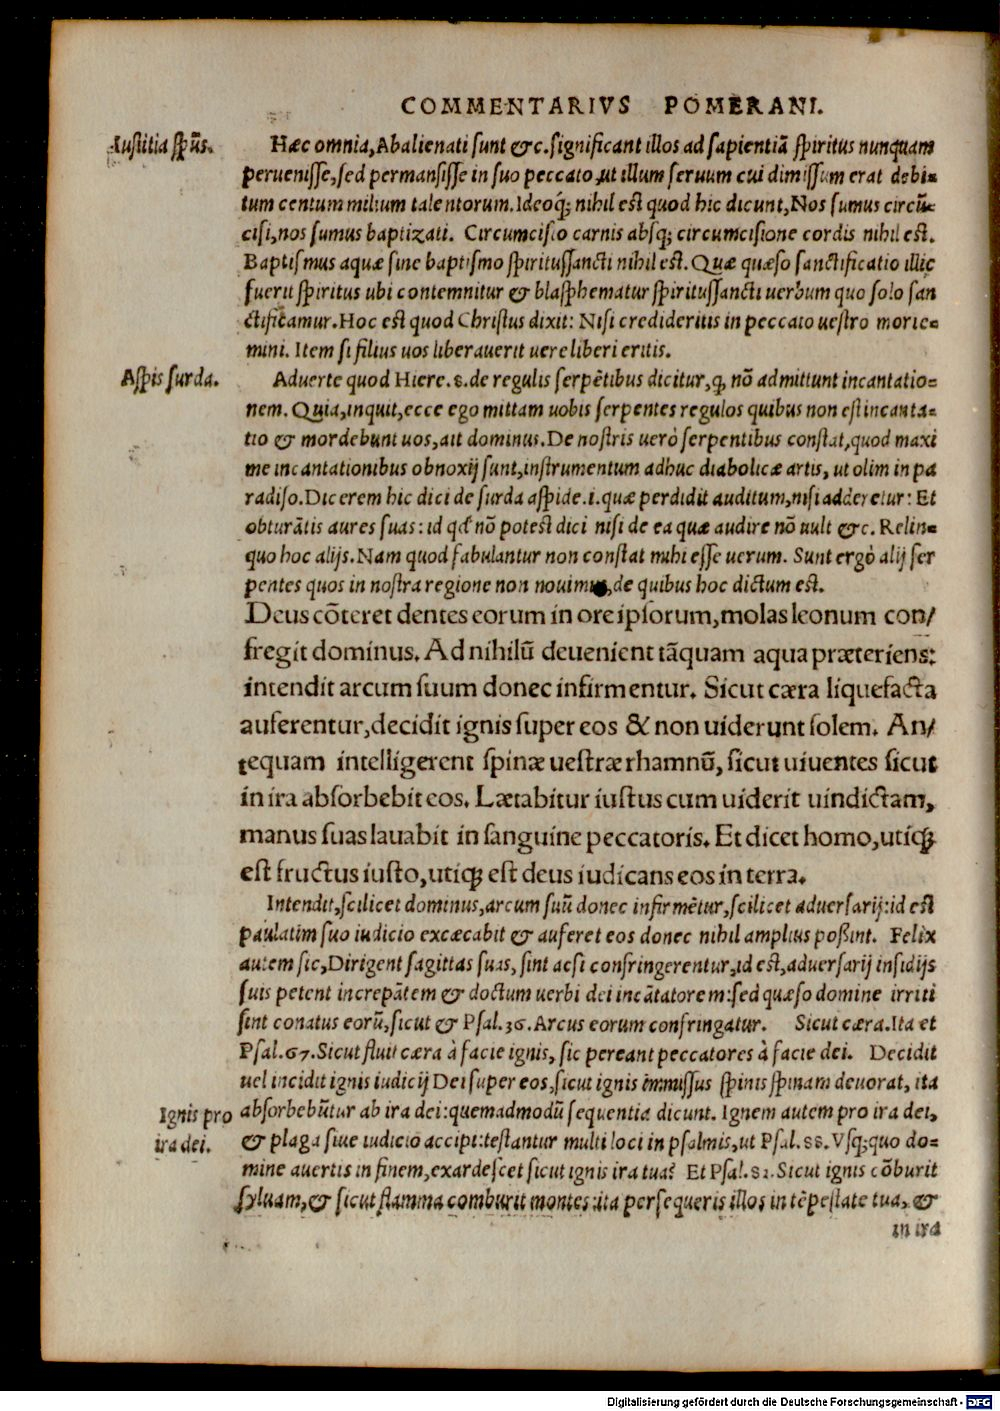 COMMENTARIVS POMERANI.
Iustitia spūs.
Hæc omnia, Abalienati sunt &c. significant illos ad sapientiā spiritus nunquam
peruenisse, sed permansisse in suo peccato, ut illum seruum cui dimissum erat debi-
tum centum milium talentorum. Ideoq; nihil est quod hic dicunt, Nos sumus circū-
cisi, nos sumus baptizati. Circumcisio carnis absq; circumcisione cordis nihil est.
Baptismus aquæ sine baptismo spiritussancti nihil est. Quæ quæso sanctificatio illic
fuerit spiritus ubi contemnitur & blasphematur spiritussancti uerbum quo solo san
ctificamur. Hoc est quod Christus dixit: Nisi credideritis in peccato uestro morie-
mini. Item si filius uos liberauerit uere liberi eritis.
Aspis surda.
Aduerte quod Hiere. 8. de regulis serpētibus dicitur, q, nō admittunt incantatio-
nem. Quia, inquit, ecce ego mittam uobis serpentes regulos quibus non est incanta-
tio & mordebunt uos, ait dominus. De nostris uerò serpentibus constat, quod maxi
me incantationibus obnoxij sunt, instrumentum adhuc diabolicæ artis, ut olim in pa
radiso. Dicerem hic dici de surda aspide .i. quæ perdidit auditum, nisi adderetur: Et
obturātis aures suas: id qd nō potest dici nisi de ea quæ audire nō uult &c. Relin-
quo hoc alijs. Nam quod fabulantur non constat mihi esse uerum. Sunt ergò alij ser
pentes quos in nostra regione non nouimus, de quibus hoc dictum est.
Deus cōteret dentes eorum in ore ipsorum, molas leonum con/
fregit dominus. Ad nihilū deuenient tāquam aqua præteriens:
intendit arcum suum donec infirmentur. Sicut cæra liquefacta
auferentur, decidit ignis super eos & non uiderunt solem. An/
tequam intelligerent spinæ uestræ rhamnū, sicut uiuentes sicut
in ira absorbebit eos. Lætabitur iustus cum uiderit uindictam,
manus suas lauabit in sanguine peccatoris. Et dicet homo, utiq;
est fructus iusto, utiq; est deus iudicans eos in terra.
Intendit, scilicet dominus, arcum suū donec infirmētur, scilicet aduersarij: id est
paulatim suo iudicio excæcabit & auferet eos donec nihil amplius poßint. Felix
autem sic, Dirigent sagittas suas, sint acsi confringerentur, id est, aduersarij insidijs
suis petent increpātem & doctum uerbi dei incātatorem: sed quæso domine irriti
sint conatus eorū, sicut & Psal. 36. Arcus eorum confringatur. Sicut cæra. Ita et
Psal. 67. Sicut fluit cæra à facie ignis, sic pereant peccatores à facie dei. Decidit
uel incidit ignis iudicij Dei super eos, sicut ignis immissus spinis spinam deuorat, ita
absorbebūtur ab ira dei: quemadmodū sequentia dicunt. Ignem autem pro ira dei,
Ignis pro
ira dei.
& plaga siue iudicio accipi: testantur multi loci in psalmis, ut Psal. 88. Vsq; quo do-
mine auertis in finem, exardescet sicut ignis ira tua? Et Psal. 82. Sicut ignis cōburit
syluam, & sicut flamma comburit montes: ita persequeris illos in tēpestate tua, &
in ira
Digitalisierung gefördert durch die Deutsche Forschungsgemeinschaft - DFG